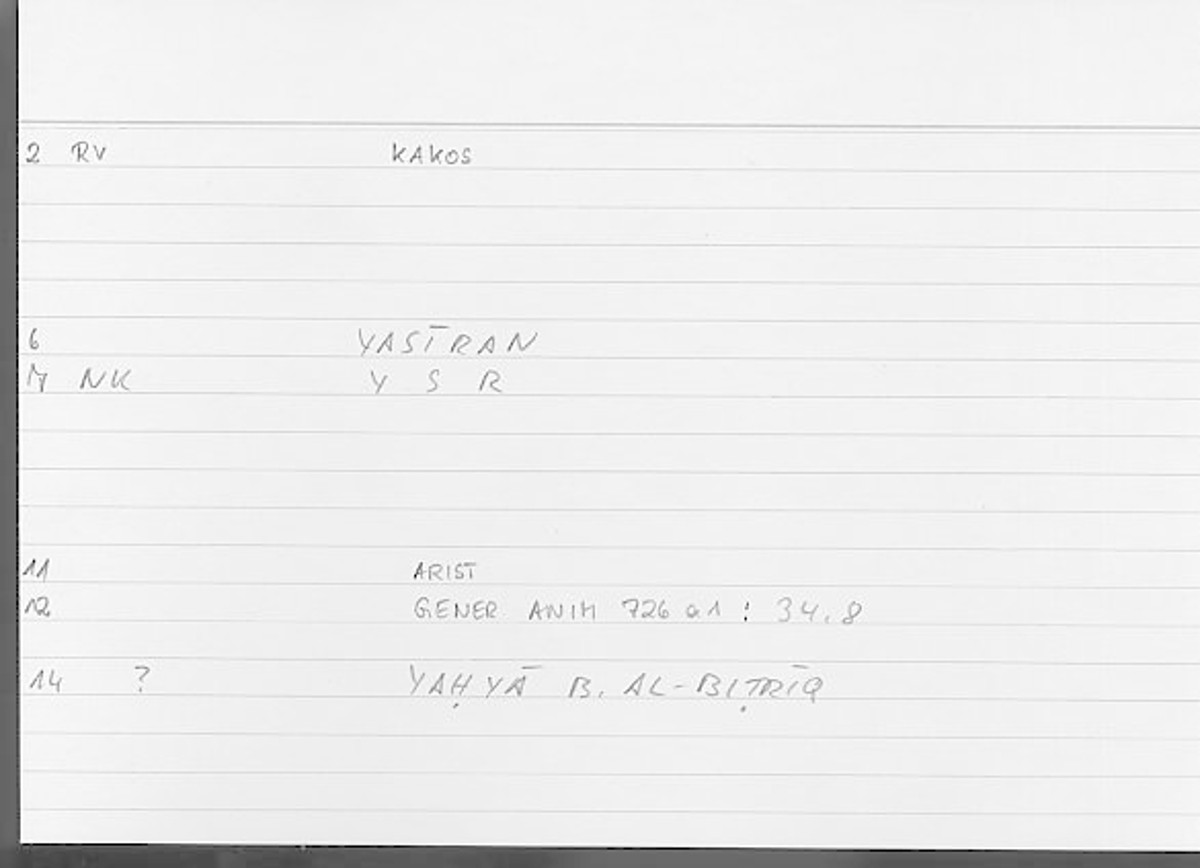 2 RV KAKOS
6 YASĪRAN
7 NK Y S R
11 ARIST
12 GENER ANIM 726 a 1 : 34.8
14 ? YAḤYĀ B. AL-BIṬRĪQ